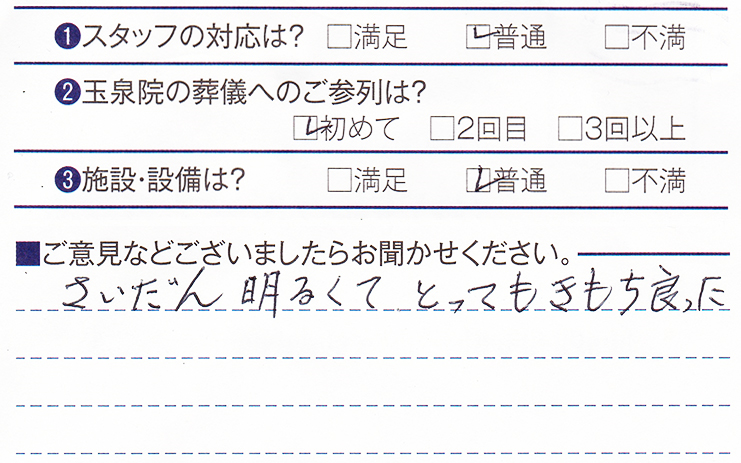 ❶スタッフの対応は? □満足 ☑普通 □不満
❷玉泉院の葬儀へのご参列は?
☑初めて □2回目 □3回以上
❸施設・設備は? □満足 ☑普通 □不満
■ご意見などございましたらお聞かせください。
さいだん 明るくて とってもきもち良った